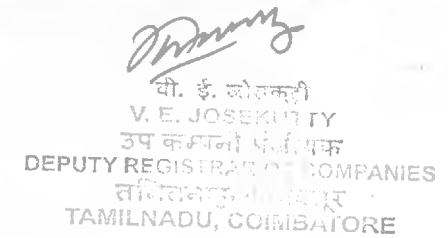 वी. ई. जोसकुट्टी
V. E. JOSEKUTTY
उप कम्पनी पंजीयक
DEPUTY REGISTRAR OF COMPANIES
तमिलनाडु,
TAMILNADU, COIMBATORE